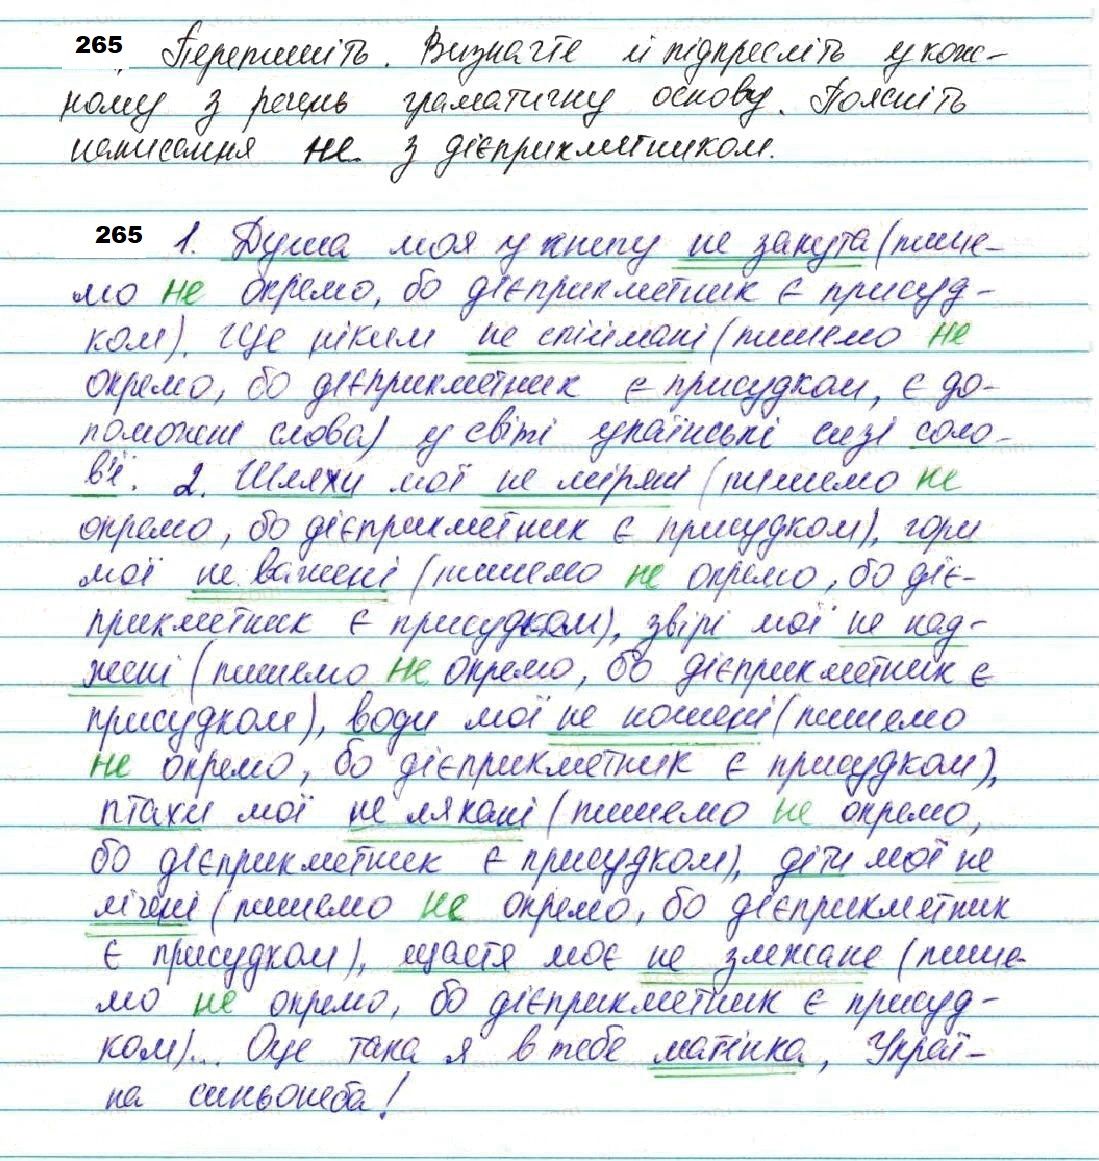 265 Перепишіть. Визначте й підкресліть у кож-
ному з речень граматичну основу. Поясніть
написання не з дієприкметником.
265 1. Душа моя у книгу не закута (пише-
мо не окремо, бо дієприкметник є присуд-
ком). Ще ніким не спіймані (пишемо не
окремо, бо дієприкметник є присудком, є до-
поможні слова) у світі українські сизі соло-
в'ї. 2. Шляхи мої не міряні (пишемо не
окремо, бо дієприкметник є присудком), гори
мої не важені (пишемо не окремо, бо діє-
прикметник є присудком), звірі мої не над-
жені (пишемо не окремо, бо дієприкметник є
присудком), води мої не ношені (пишемо
не окремо, бо дієприкметник є присудком),
птахи мої не лякані (пишемо не окремо,
бо дієприкметник є присудком), діти мої не
лічені (пишемо не окремо, бо дієприкметник
є присудком), щастя моє не злежане (пише-
мо не окремо, бо дієприкметник є присуд-
ком)... Оце така я в тебе матінка, Украї-
на синьонеба!